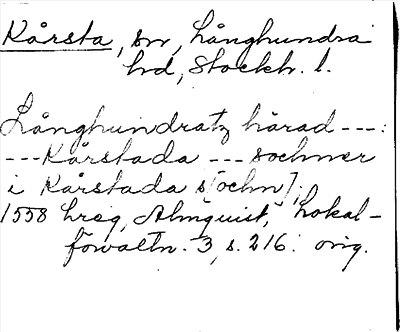 Kårsta, sn, Långhundra
hd, Stockh. l.
Långhundratz härad ---:
---Kårstada --- sochner
i Kårstada s[ochn];
1558 hreg, Almquist, Lokal-
förvaltn. 3, s. 216. orig.